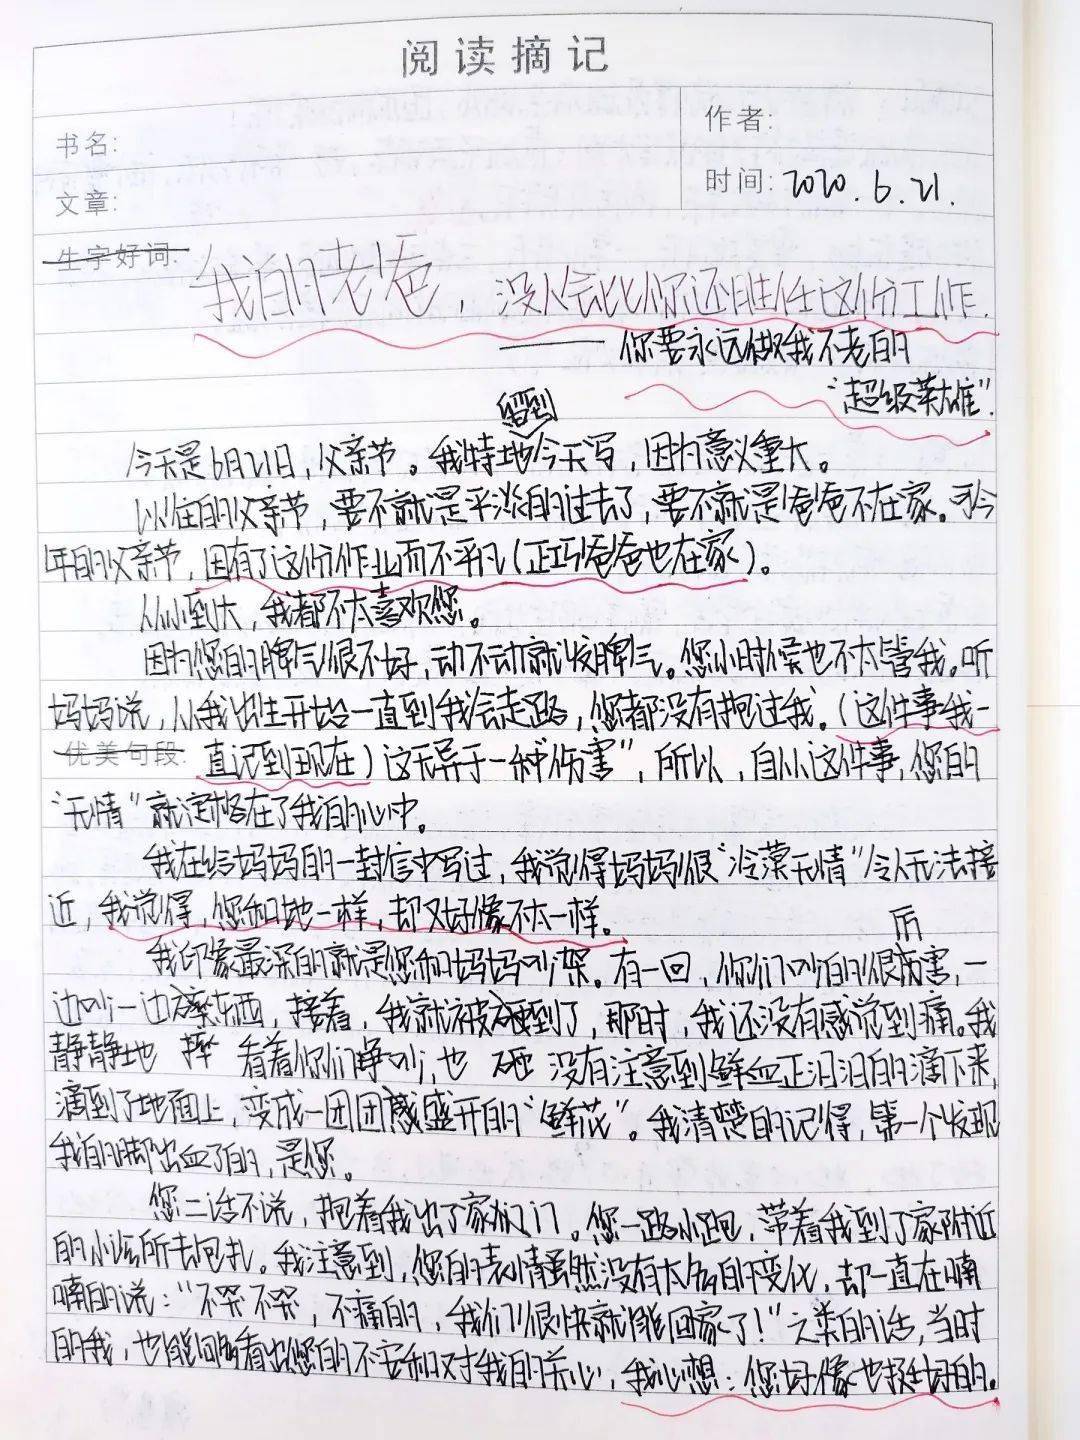 阅读摘记
书名:
作者:
文章:
时间: 2020.6.21.
生字好词:
我的老爸，没人会比你还胜任这份工作.
——你要永远做我不老的
“超级英雄”.
留到
今天是6月21日，父亲节。我特地今天写，因为意义重大。
以往的父亲节，要不就是平淡的过去了，要不就是爸爸不在家。可今
年的父亲节，因有了这份作业而不平凡(正巧爸爸也在家)。
从小到大，我都不太喜欢您。
因为您的脾气很不好，动不动就发脾气。您小时候也不太管我。听
妈妈说，从我出生开始一直到我会走路，您都没有抱过我。(这件事我一
优美句段:
直记到现在)这无异于一种“伤害”，所以，自从这件事，您的
“无情”就定格在了我的心中。
我在给妈妈的一封信中写过，我觉得妈妈很“冷漠无情”令人无法接
近，我觉得，您和她一样，却又好像不太一样。
厉
我印象最深的就是您和妈妈吵架。有一回，你们吵的很害，一
边吵一边摔东西，接着，我就被砸到了，那时，我还没有感觉到痛。我
静静地 摔 看着你们争吵，也 砸 没有注意到鲜血正汩汩的滴下来，
滴到了地面上，变成一团团盛开的“鲜花”。我清楚的记得，第一个发现
我的脚出血了的，是您。
您二话不说，抱着我出了家门。您一路小跑，带着我到了家附近
的小诊所去包扎。我注意到，您的表情虽然没有太多的变化，却一直在喃
喃的说：“不哭不哭，不痛的，我们很快就能回家了！”之类的话，当时
的我，也能看出您的不安和对我的关心，我心想：您好像也挺好的。